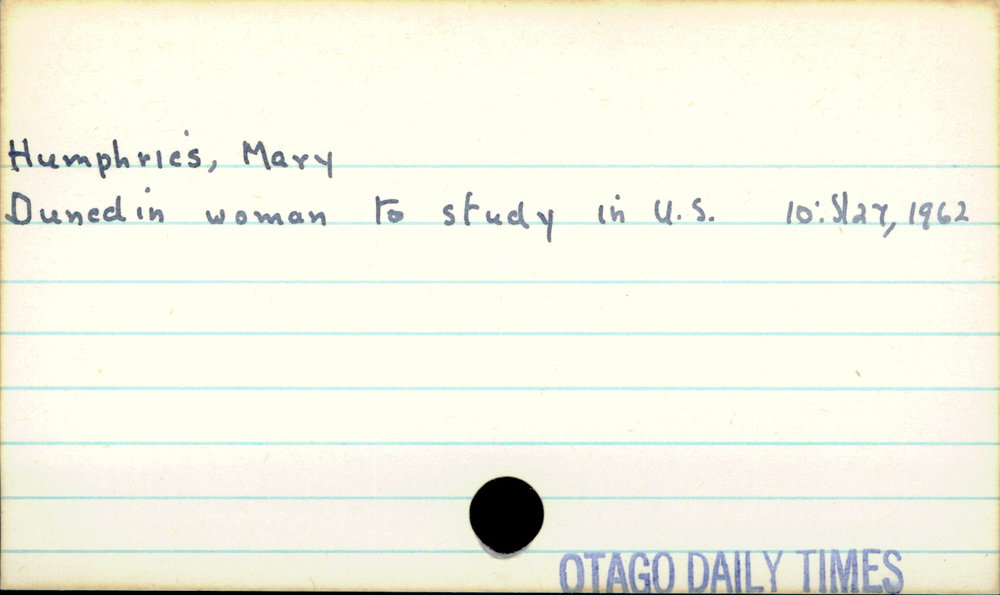 Humphries, Mary
Dunedin woman to study in U.S. 10: S/27, 1962
OTAGO DAILY TIMES